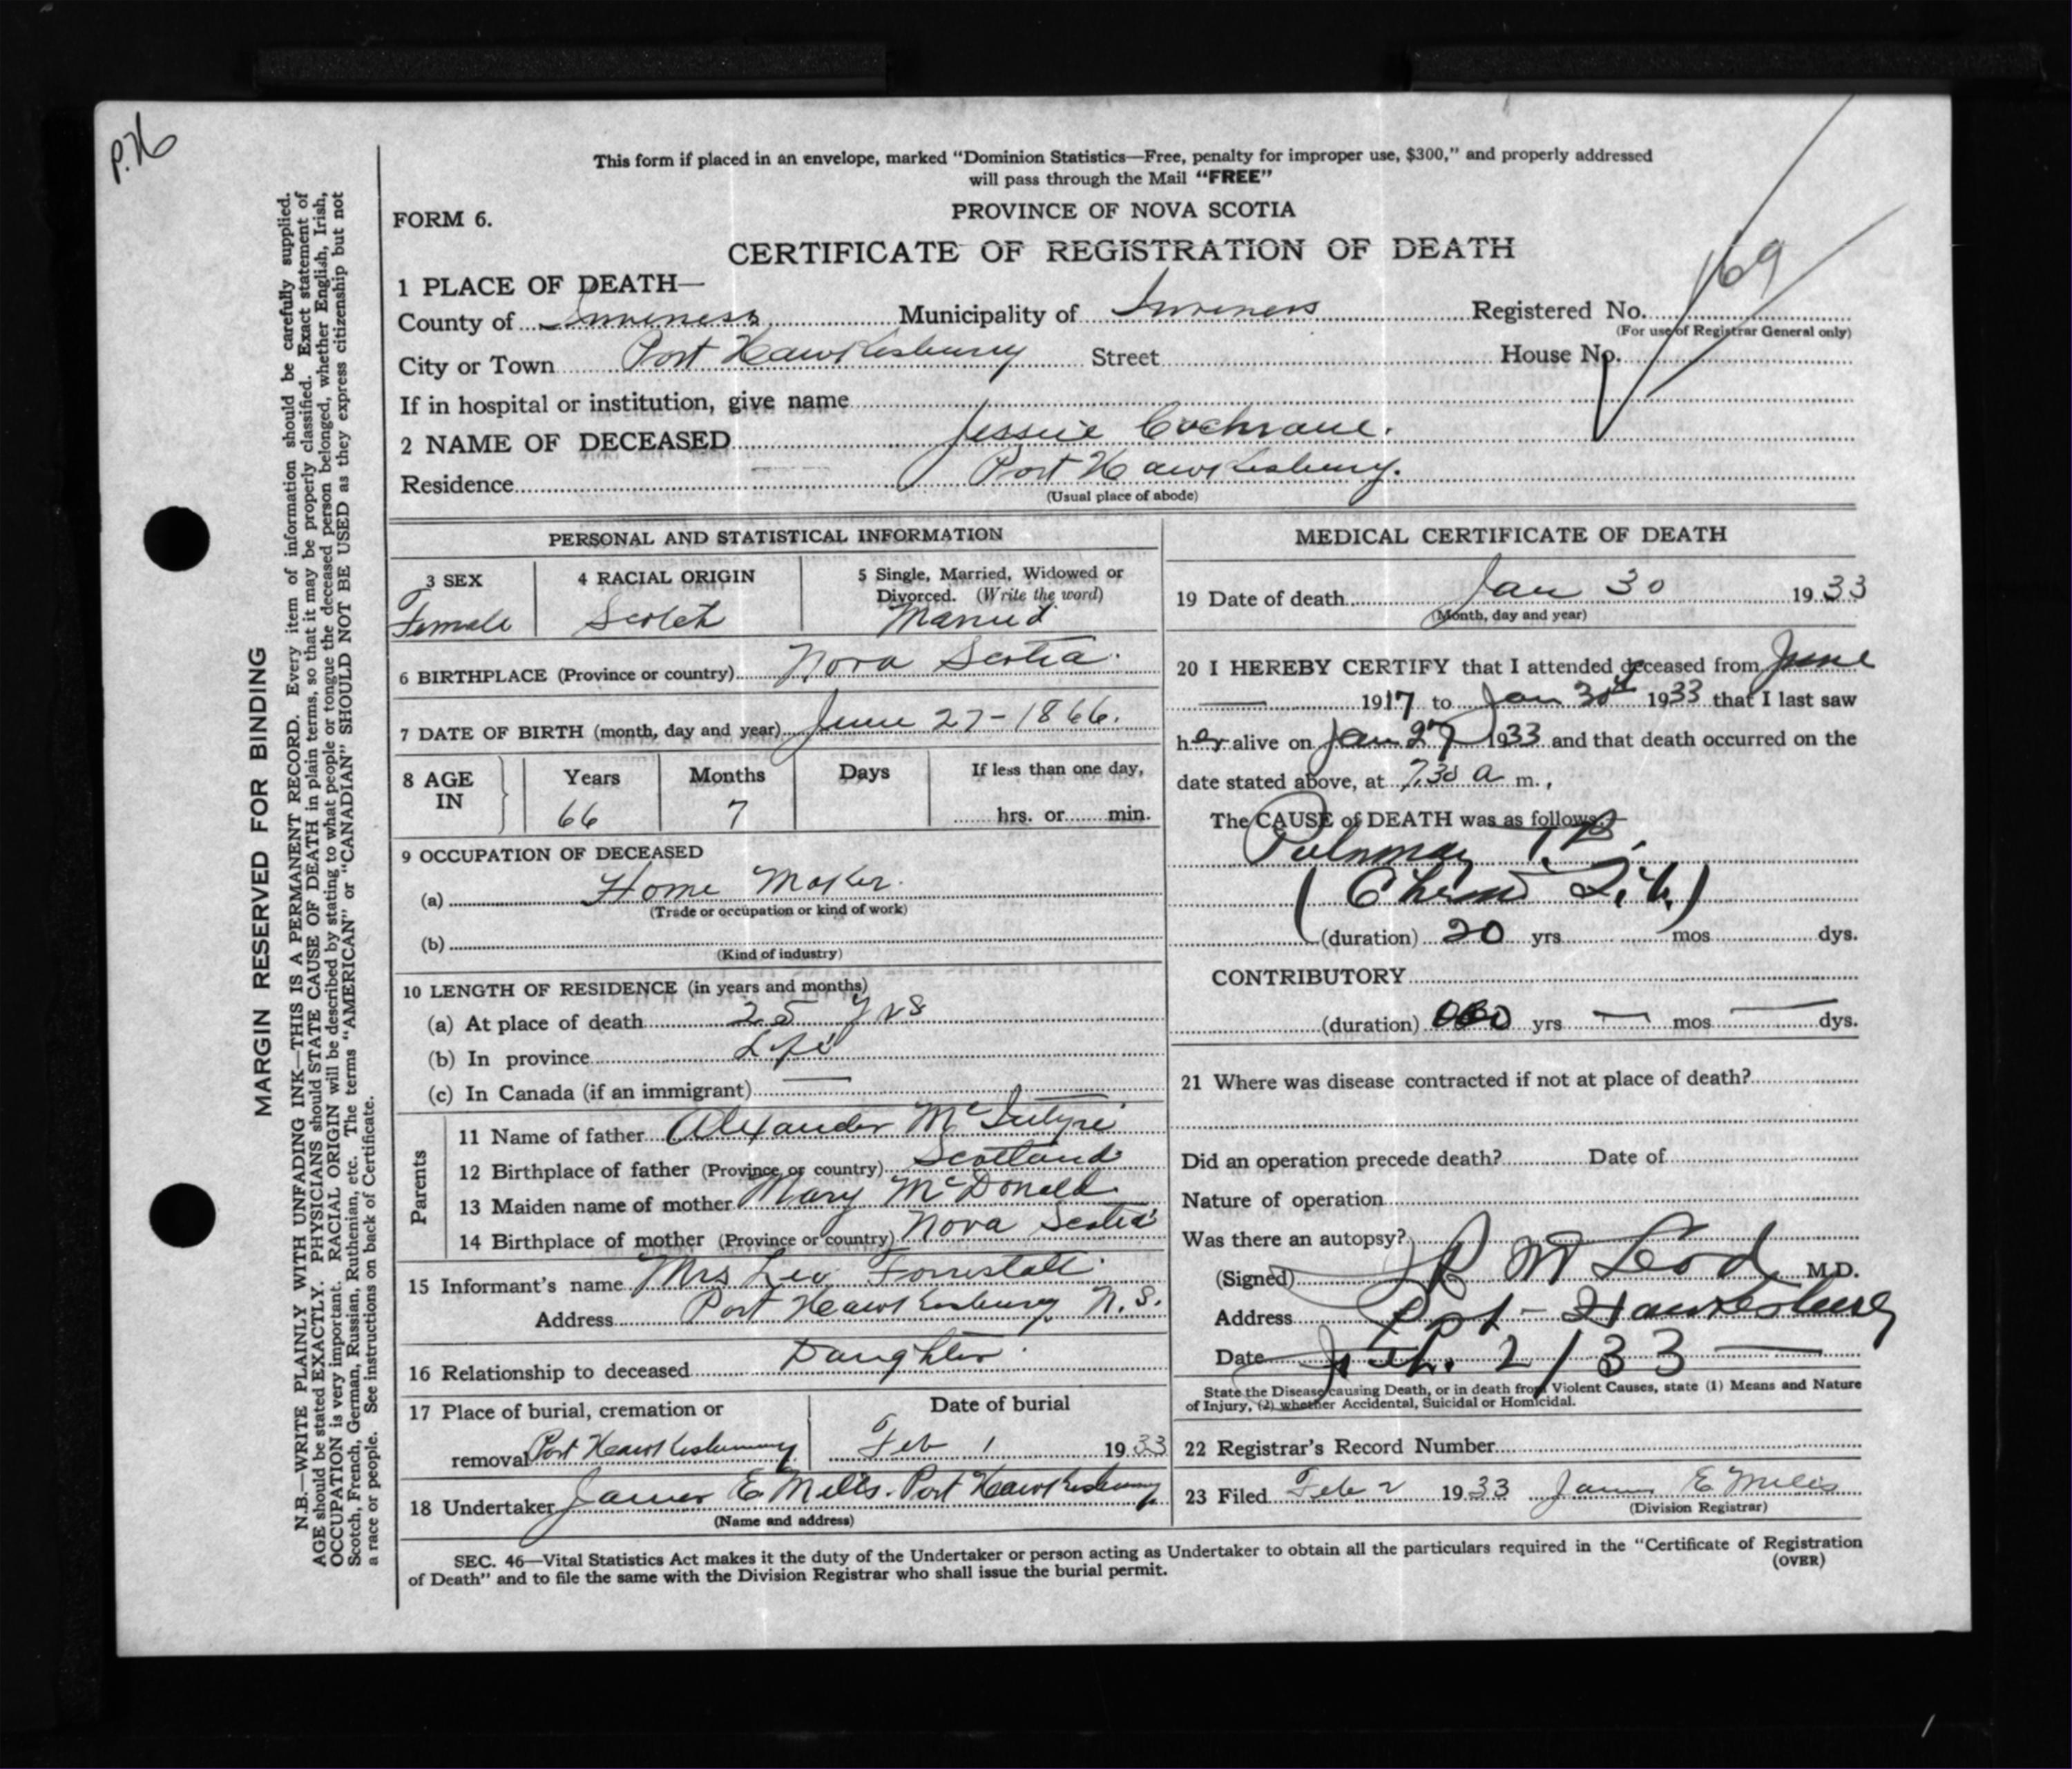 P.H
This form if placed in an envelope, marked “Dominion Statistics—Free, penalty for improper use, $300,” and properly addressed
will pass through the Mail “FREE”
FORM 6.
PROVINCE OF NOVA SCOTIA
CERTIFICATE OF REGISTRATION OF DEATH
1 PLACE OF DEATH—
County of Inverness Municipality of Inverness Registered No. 169
(For use of Registrar General only)
City or Town Port Hawkesbury Street House No.
If in hospital or institution, give name
2 NAME OF DECEASED Jessie Cochrane.
Residence Port Hawkesbury.
(Usual place of abode)
PERSONAL AND STATISTICAL INFORMATION
3 SEX 4 RACIAL ORIGIN 5 Single, Married, Widowed or
Divorced. (Write the word)
Female Scotch Married
6 BIRTHPLACE (Province or country) Nova Scotia.
7 DATE OF BIRTH (month, day and year) June 27-1866.
8 AGE IN Years Months Days If less than one day,
66 7 hrs. or min.
9 OCCUPATION OF DECEASED
(a) Home Maker.
(Trade or occupation or kind of work)
(b)
(Kind of industry)
10 LENGTH OF RESIDENCE (in years and months)
(a) At place of death 25 yrs
(b) In province Life
(c) In Canada (if an immigrant) —
Parents
11 Name of father Alexander McIntyre
12 Birthplace of father (Province or country) Scotland
13 Maiden name of mother Mary McDonald
14 Birthplace of mother (Province or country) Nova Scotia
15 Informant's name Mrs Leo Forrestall.
Address Port Hawkesbury N.S.
16 Relationship to deceased Daughter.
17 Place of burial, cremation or Date of burial
removal Port Hawkesbury Feb 1 1933
18 Undertaker James E Mills. Port Hawkesbury
(Name and address)
MEDICAL CERTIFICATE OF DEATH
19 Date of death Jan 30 1933
(Month, day and year)
20 I HEREBY CERTIFY that I attended deceased from June
— 1917 to Jan 30th 1933 that I last saw
her alive on Jan 27 1933 and that death occurred on the
date stated above, at 7.30 a m.,
The CAUSE of DEATH was as follows:—
Pulmonay T.B.
(
)
(duration) 20 yrs mos dys.
CONTRIBUTORY
(duration) yrs — mos — dys.
21 Where was disease contracted if not at place of death?
Did an operation precede death? Date of
Nature of operation
Was there an autopsy?
(Signed) McLeod M.D.
Address Port-Hawkesbury
Date 2/33 —
State the Disease causing Death, or in death from Violent Causes, state (1) Means and Nature
of Injury, (2) whether Accidental, Suicidal or Homicidal.
22 Registrar's Record Number
23 Filed Feb 2 1933 James E Mills
(Division Registrar)
SEC. 46—Vital Statistics Act makes it the duty of the Undertaker or person acting as Undertaker to obtain all the particulars required in the “Certificate of Registration
of Death” and to file the same with the Division Registrar who shall issue the burial permit.
(OVER)
MARGIN RESERVED FOR BINDING
N.B.—WRITE PLAINLY WITH UNFADING INK—THIS IS A PERMANENT RECORD. Every item of information should be carefully supplied.
AGE should be stated EXACTLY. PHYSICIANS should STATE CAUSE OF DEATH in plain terms, so that it may be properly classified. Exact statement of
OCCUPATION is very important. RACIAL ORIGIN will be described by stating to what people or tongue the deceased person belonged, whether English, Irish,
Scotch, French, German, Russian, Ruthenian, etc. The terms “AMERICAN” or “CANADIAN” SHOULD NOT BE USED as they express citizenship but not
a race or people. See instructions on back of Certificate.